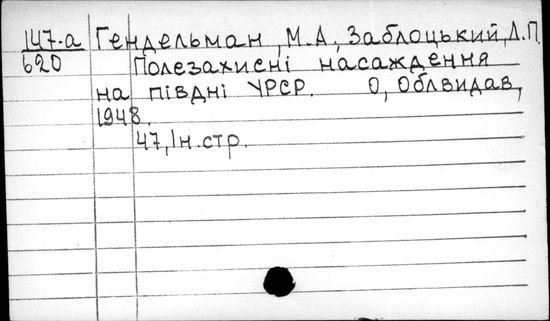 147-а Гендельман, М.А., Заблоцький, Л.П.
620 Полезахисні насаждення
на півдні УРСР. О, Облвидав,
1948.
47, Ін.стр.